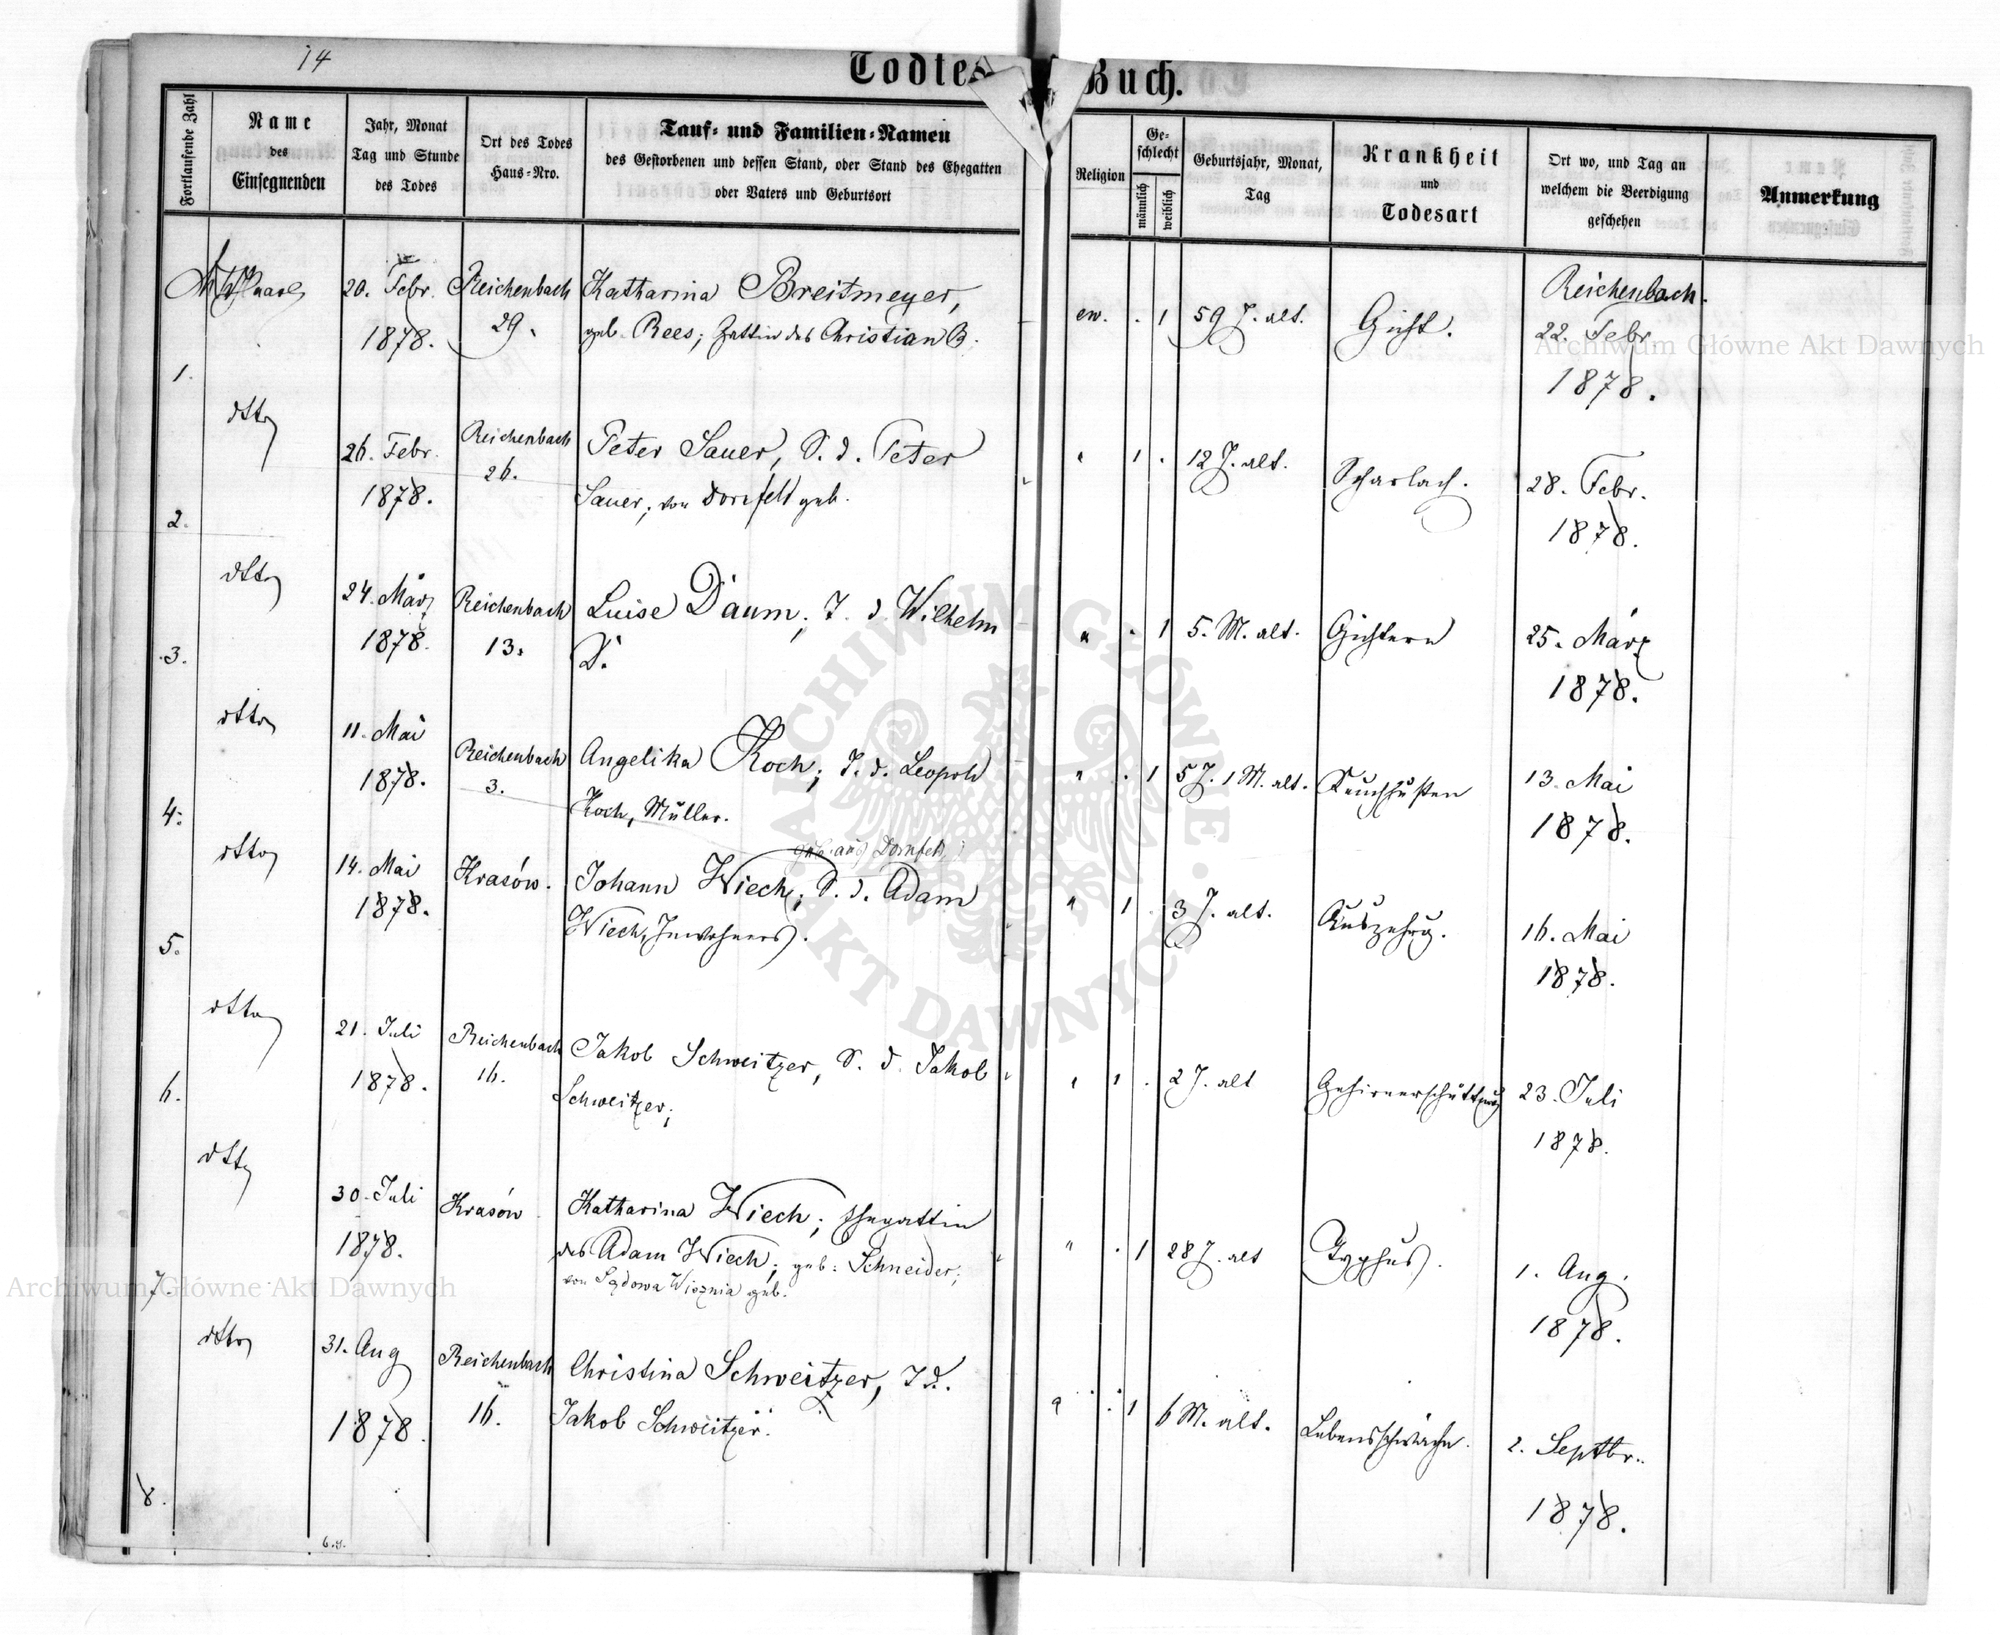 14
Todtes-Buch.
Fortlaufende Zahl
Name
des
Einsegnenden
Jahr, Monat
Tag und Stunde
des Todes
Ort des Todes
Haus-Nro.
Tauf- und Familien-Namen
des Gestorbenen und dessen Stand, oder Stand des Ehegatten
oder Vaters und Geburtsort
Religion
Ge-
schlecht
männlich
weiblich
Geburtsjahr, Monat,
Tag
Krankheit
und
Todesart
Ort wo, und Tag an
welchem die Beerdigung
geschehen
Anmerkung
1.
20. Febr.
1878.
Reichenbach
29.
Katharina Breitmeyer,
geb. Rees; Gattin des Christian B.
ev. . 1
59 J. alt.
Gicht.
Reichenbach.
22. Febr.
1878.
2.
dtto
26. Febr.
1878.
Reichenbach
26.
Peter Sauer, S. d. Peter
Sauer, von Dornfeld geb.
" 1 .
12 J. alt.
Scharlach.
28. Febr.
1878.
3.
dtto
24. März
1878.
Reichenbach
13.
Luise Daum, T. d. Wilhelm
D.
" . 1
5. M. alt.
Gichtern
25. März
1878.
4.
dtto
11. Mai
1878.
Reichenbach
3.
Angelika Koch, T. d. Leopold
Koch, Müller.
" . 1
5 J. 1 M. alt.
Keuchhusten
13. Mai
1878.
5.
dtto
14. Mai
1878.
Krasów.
geb. aus Dornfeld
Johann Wiech, S. d. Adam
Wiech, Inwohners.
" 1 .
3 J. alt.
Auszehrg.
16. Mai
1878.
6.
dtto
21. Juli
1878.
Reichenbach
16.
Jakob Schweitzer, S. d. Jakob
Schweitzer;
" 1 .
2 J. alt
Gehirnerschüttung
23. Juli
1878.
7.
dtto
30. Juli
1878.
Krasów
Katharina Wiech; Ehegattin
des Adam Wiech; geb: Schneider;
von Sądowa Wisznia geb.
" . 1
28 J. alt
Typhus.
1. Aug.
1878.
8.
dtto
31. Aug
1878.
Reichenbach
16.
Christina Schweitzer, T d.
Jakob Schweitzer.
" . 1
6 M. alt.
Lebensschwäche.
2. Septbr.
1878.
Archiwum Główne Akt Dawnych
Archiwum Główne Akt Dawnych
ARCHIWUM GŁÓWNE · AKT DAWNYCH ·